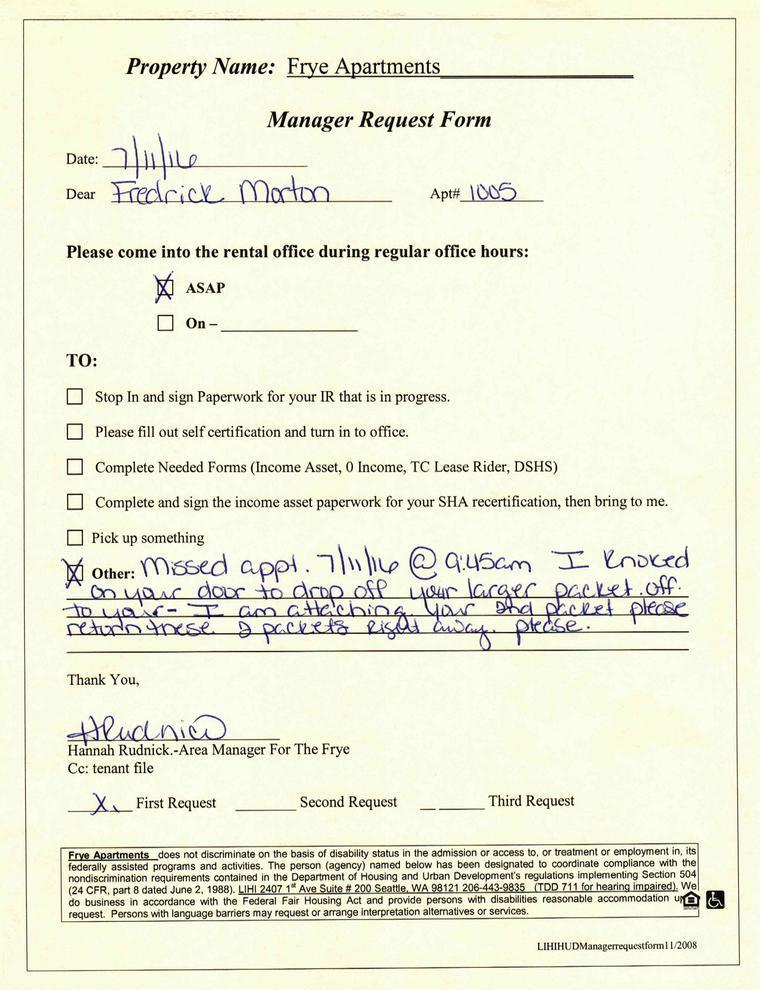 Property Name: Frye Apartments
Manager Request Form
Date: 7/11/16
Dear Fredrick Morton Apt# 1005
Please come into the rental office during regular office hours:
ASAP
On –
TO:
Stop In and sign Paperwork for your IR that is in progress.
Please fill out self certification and turn in to office.
Complete Needed Forms (Income Asset, 0 Income, TC Lease Rider, DSHS)
Complete and sign the income asset paperwork for your SHA recertification, then bring to me.
Pick up something
Other: Missed appt. 7/11/16 @ 9:45am I knoked
on your door to drop off your larger packet. off.
to your - I am attaching your 2nd packet please
return these 2 packets right away. please.
Thank You,
HRudnick
Hannah Rudnick.-Area Manager For The Frye
Cc: tenant file
X. First Request Second Request Third Request
Frye Apartments does not discriminate on the basis of disability status in the admission or access to, or treatment or employment in, its
federally assisted programs and activities. The person (agency) named below has been designated to coordinate compliance with the
nondiscrimination requirements contained in the Department of Housing and Urban Development's regulations implementing Section 504
(24 CFR, part 8 dated June 2, 1988). LIHI 2407 1st Ave Suite # 200 Seattle, WA 98121 206-443-9835 (TDD 711 for hearing impaired). We
do business in accordance with the Federal Fair Housing Act and provide persons with disabilities reasonable accommodation
request. Persons with language barriers may request or arrange interpretation alternatives or services.
LIHIHUDManagerrequestform11/2008